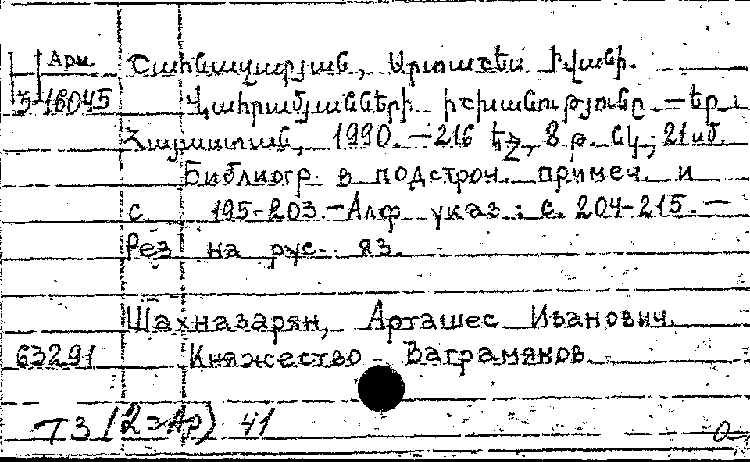 Арм.
Շահնազարյան, Արտաշես Իվանի.
5-16045 Վահրամյանների իշխանությունը. — Եր.
Հայաստան, 1990. — 216 էջ, 8 թ. նկ.; 21սմ.
Библиогр. в подстроч. примеч. и
с. 195-203. — Алф. указ.: с. 204-215. —
Рез. на рус. яз.
Шахназарян, Арташес Иванович.
63291 Княжество Ваграмянов.
Т3(2=Ар) 41